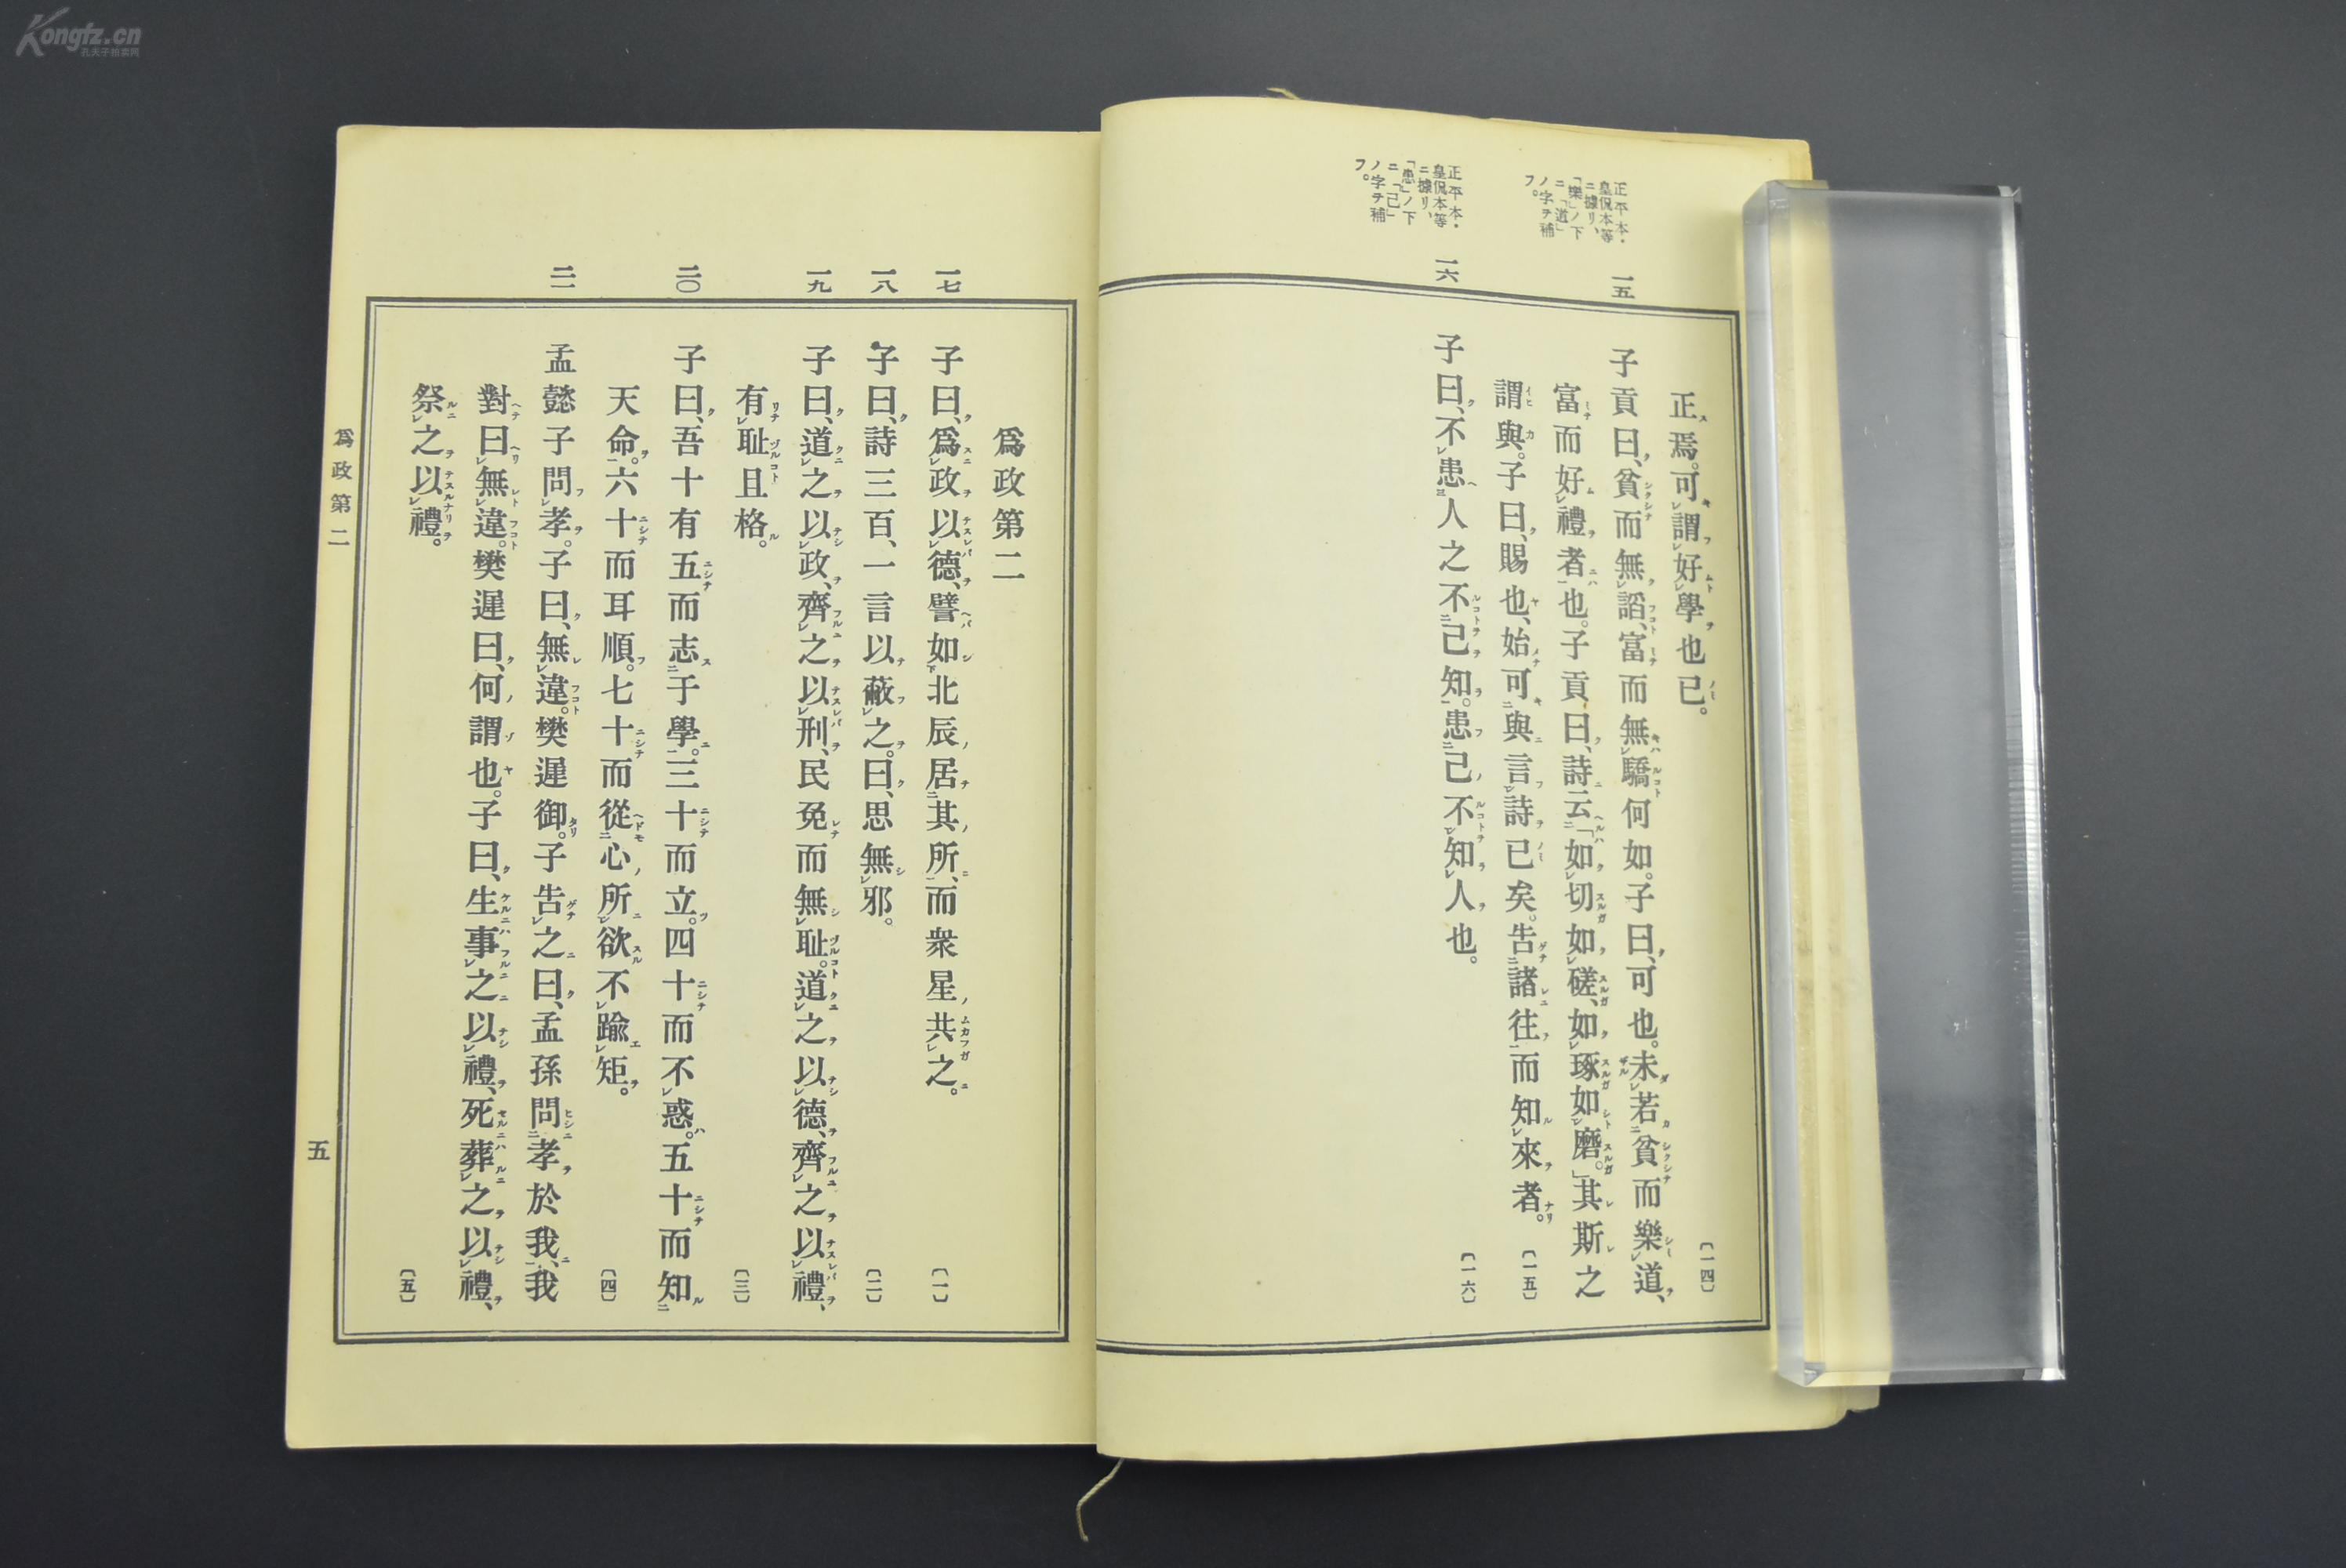 Kongfz.cn
孔夫子拍卖网
正平本・
皇侃本等
ニ據リ、
「樂」ノ下
ニ「道」
ノ字ヲ補
フ。
正平本・
皇侃本等
ニ據リ、
「患」ノ下
ニ「己」
ノ字ヲ補
フ。
正焉。可謂好學也已。〔一四〕
一五
子貢曰、貧而無諂、富而無驕何如。子曰、可也。未若貧而樂道、
富而好禮者也。子貢曰、詩云「如切如磋、如琢如磨。」其斯之
謂與。子曰、賜也、始可與言詩已矣。告諸往而知來者。〔一五〕
一六
子曰、不患人之不己知。患己不知人也。〔一六〕
爲政第二
一七
子曰、爲政以德、譬如北辰居其所、而衆星共之。〔一〕
一八
子曰、詩三百、一言以蔽之。曰、思無邪。〔二〕
一九
子曰、道之以政、齊之以刑、民免而無恥。道之以德、齊之以禮、
有恥且格。〔三〕
二〇
子曰、吾十有五而志于學。三十而立。四十而不惑。五十而知
天命。六十而耳順。七十而從心所欲不踰矩。〔四〕
二一
孟懿子問孝。子曰、無違。樊遲御。子告之曰、孟孫問孝於我、我
對曰無違。樊遲曰、何謂也。子曰、生事之以禮、死葬之以禮、
祭之以禮。〔五〕
爲政第二
五